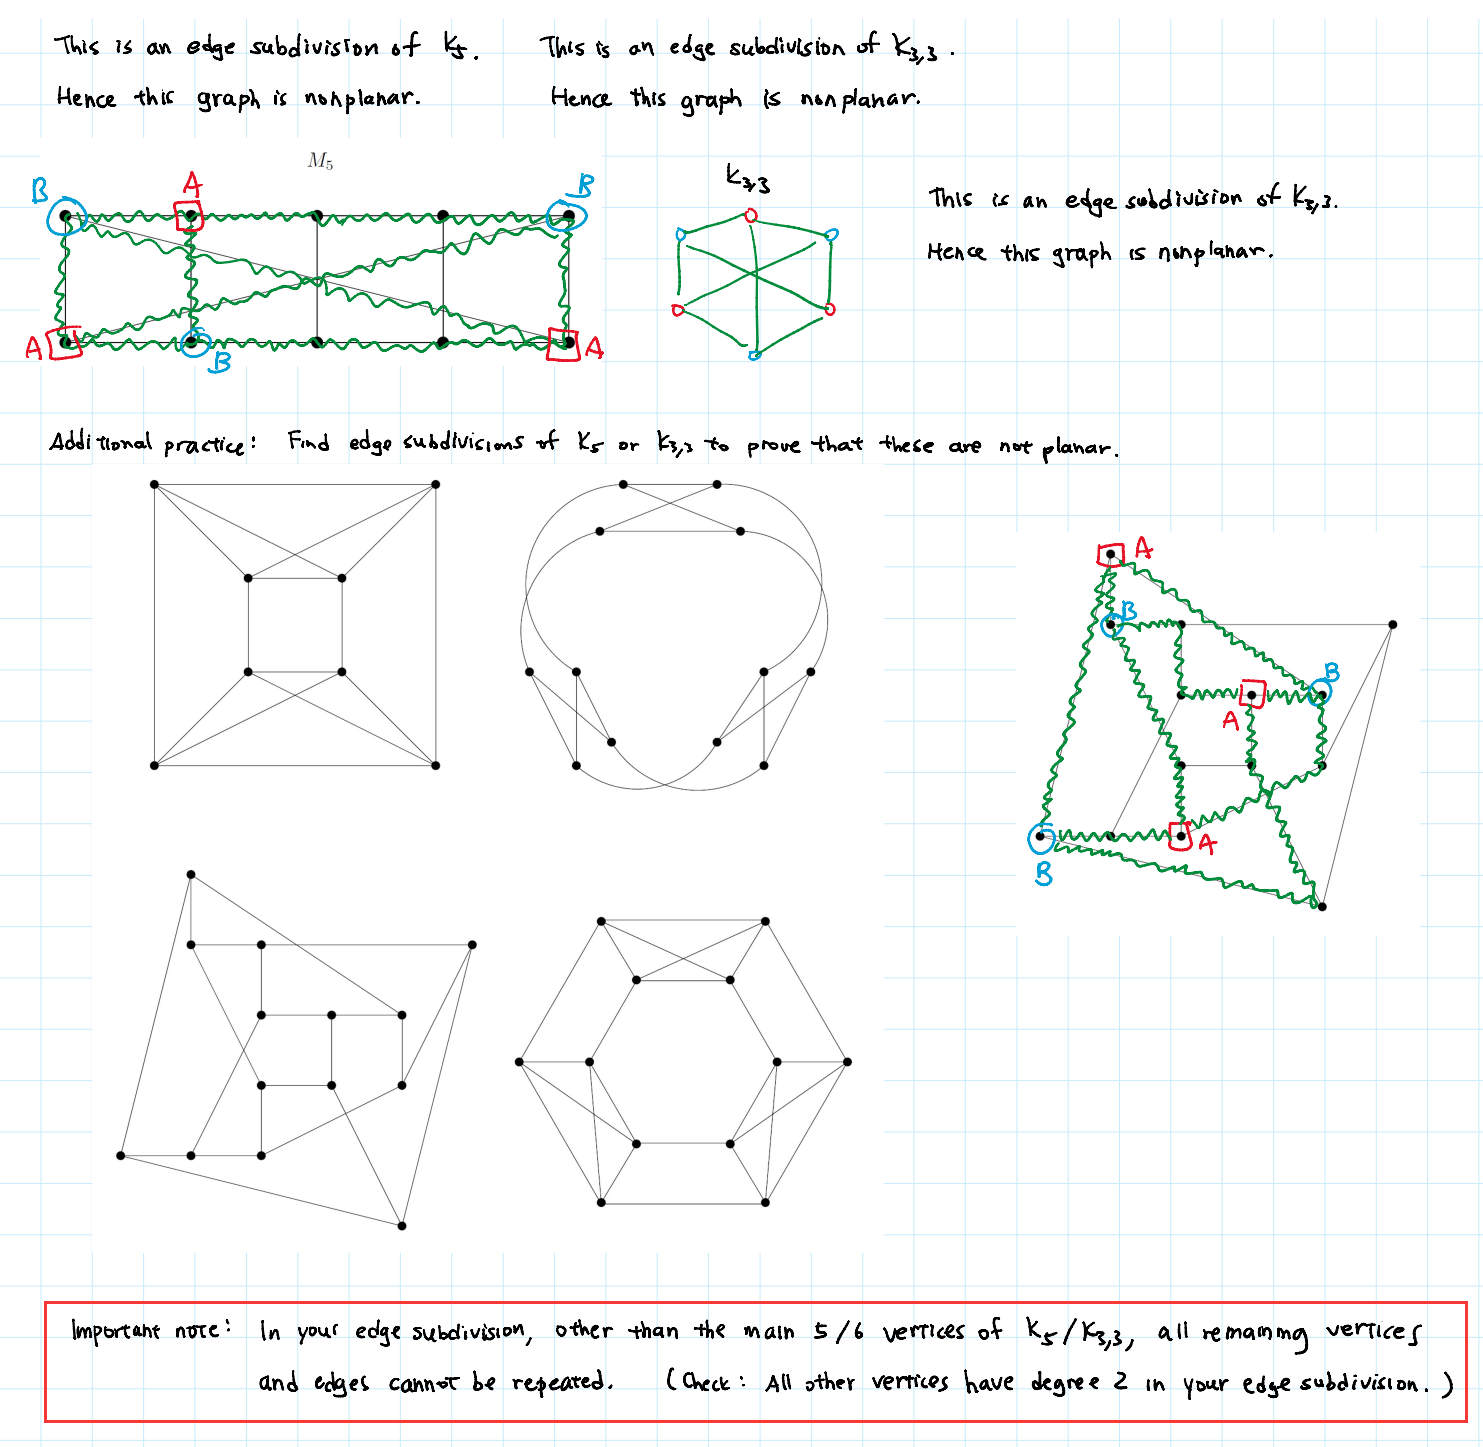 This is an edge subdivision of K5.
Hence this graph is nonplanar.
This is an edge subdivision of K3,3.
Hence this graph is nonplanar.
M5
B
A
B
A
B
A
K3,3
This is an edge subdivision of K3,3.
Hence this graph is nonplanar.
Additional practice: Find edge subdivisions of K5 or K3,3 to prove that these are not planar.
A
B
B
A
A
B
Important note: In your edge subdivision, other than the main 5/6 vertices of K5/K3,3, all remaining vertices
and edges cannot be repeated. (Check: All other vertices have degree 2 in your edge subdivision.)